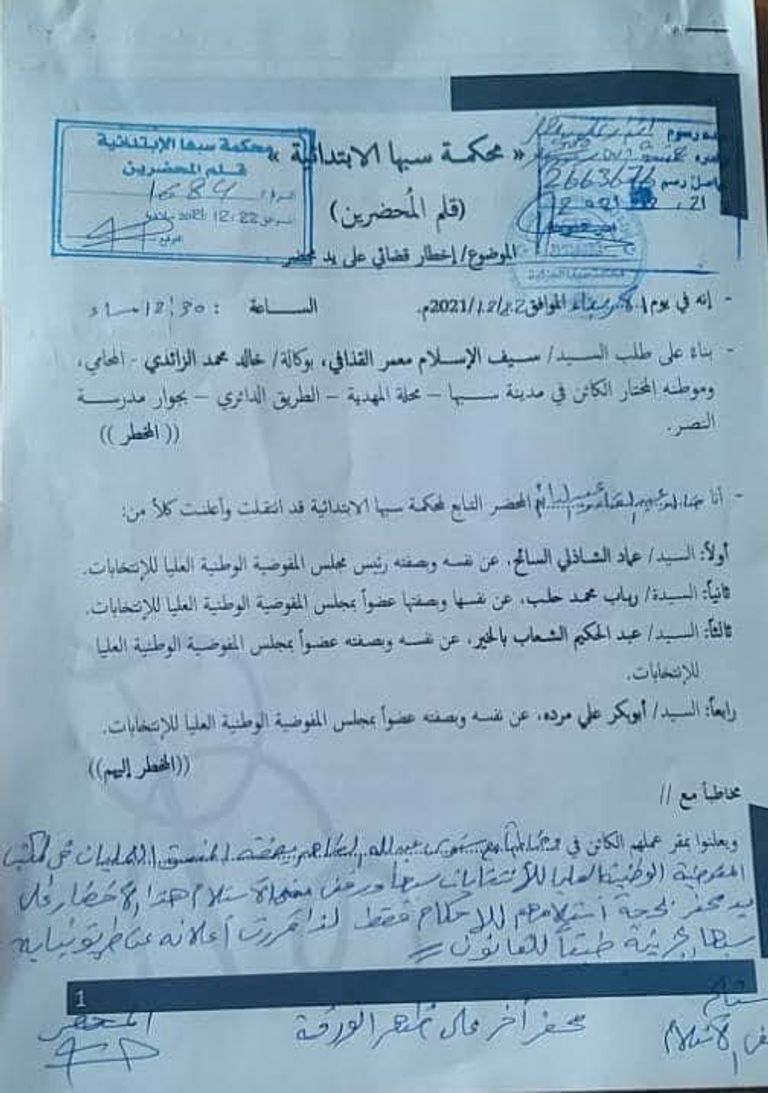 محكمة سبها الإبتدائية
قلم المحضرين
1684
2021/12/22
رسوم
رسم 2663676
« محكمة سبها الابتدائية »
(قلم المُحضرين)
الموضوع/ إخطار قضائي على يد محضر
- إنه في يوم الموافق 2021/12/22م. الساعة : 12:30 مساء
- بناءً على طلب السيد/ سيف الإسلام معمر القذافي، بوكالة/ خالد محمد الزائدي - المحامي،
وموطنه المختار الكائن في مدينة سبها – محلة المهدية – الطريق الدائري – بجوار مدرسة
النصر. (( المخطر ))
- أنا المحضر التابع لمحكمة سبها الابتدائية قد انتقلت وأعلنت كلاً من:
أولاً: السيد/ عماد الشاذلي السائح، عن نفسه وبصفته رئيس مجلس المفوضية الوطنية العليا للإنتخابات.
ثانياً: السيدة/ رباب محمد حلب، عن نفسها وبصفتها عضواً بمجلس المفوضية الوطنية العليا للإنتخابات.
ثالثاً: السيد/ عبد الحكيم الشعاب بالخير، عن نفسه وبصفته عضواً بمجلس المفوضية الوطنية العليا
للإنتخابات.
رابعاً: السيد/ أبوبكر علي مرده، عن نفسه وبصفته عضواً بمجلس المفوضية الوطنية العليا للإنتخابات.
((المخطر إليهم))
مخاطباً مع //
ويعلنوا بمقر عملهم الكائن في عبدالله بصفته المنسق العمليات في مكتب
المفوضية الوطنية العليا للأنتخابات سبها ورفض استلام هذا الاخطار على
يد محضر بحجة استلامهم للاحكام فقط لذا قررت أعلانه عن طريق نيابة
سبها الجزئية طبقاً للقانون
1
محضر أخر على ظهر الورقة
المحضر